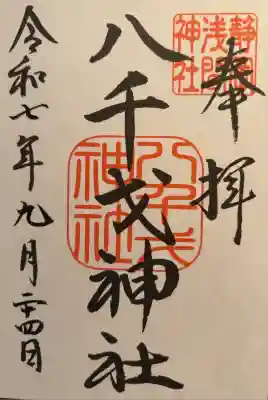 奉拝
静岡浅間神社
八千戈神社
八千戈神社
令和七年九月二十四日